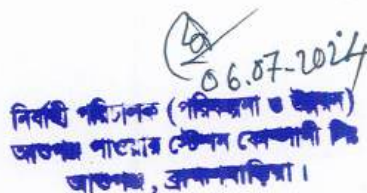 06.07.2024
নির্বাহী পরিচালক (পরিকল্পনা ও উন্নয়ন)
আশুগঞ্জ পাওয়ার স্টেশন কোম্পানী লিঃ
আশুগঞ্জ, ব্রাহ্মণবাড়িয়া।